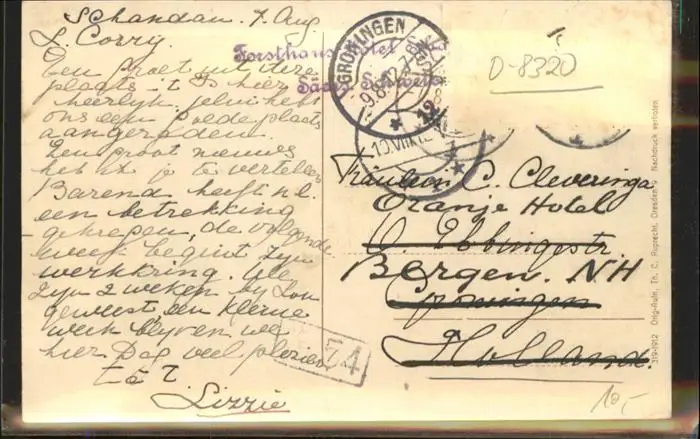 Schandau. 7 Aug
L. Corry.
Een groet uit deze
plaats - 't Is hier
heerlijk, jelui hebt
ons een goede plaats
aangeraden.
Een groot nieuws
heb ik je te vertellen
Barend heeft n.l.
een betrekking
gekregen, de volgende
week begint zijn
werkkring. We
zijn 2 weken bij
geweest, een kleine
week blijven we
hier Dag veel plezier
t à t.
Lizzie
Forsthaus Hotel
Sächs. Schweiz
GRONINGEN
9.8.12.7-8N
12
10.VIII.12
74
D-8320
Fräulein C. Cleveringa
Oranje Hotel
O. Ebbingestr.
Bergen. NH
Groningen
Holland.
10,-
319-1912 Orig-Aufn. Th. C. Ruprecht, Dresden Nachdruck verboten.